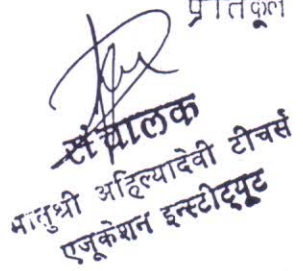 प्रतिकूल
संचालक
मातुश्री अहिल्यादेवी टीचर्स
एजूकेशन इन्स्टीट्यूट